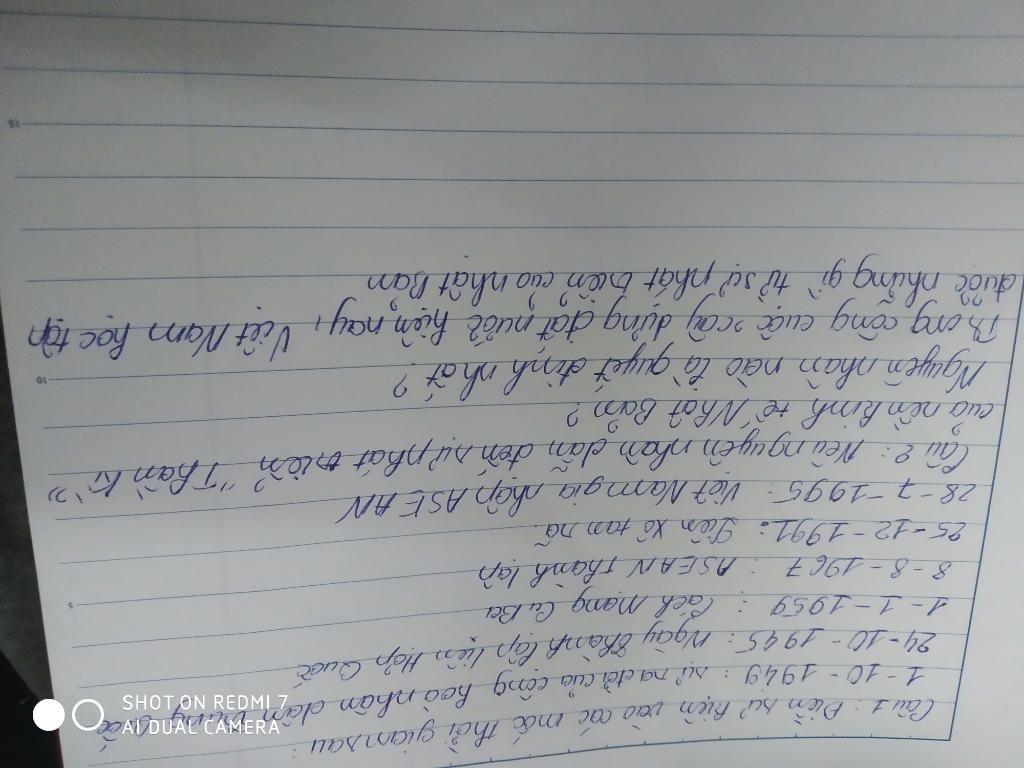 Câu 1: Điền sự kiện vào các mốc thời gian sau:
1-10-1949: sự ra đời của cộng hoà nhân dân Trung Quốc
24-10-1945: Ngày thành lập liên Hợp Quốc
1-1-1959: Cách mạng Cu Ba
8-8-1967: ASEAN thành lập
25-12-1991: Liên Xô tan rã.
28-7-1995: Việt Nam gia nhập ASEAN
Câu 2: Nêu nguyên nhân dẫn đến sự phát triển "Thần kì"
của nền kinh tế Nhật Bản?
Nguyên nhân nào là quyết định nhất?
Trong công cuộc xây dựng đất nước hiện nay, Việt Nam học tập
được những gì từ sự phát triển của nhật Bản
5
10
15
SHOT ON REDMI 7
AI DUAL CAMERA